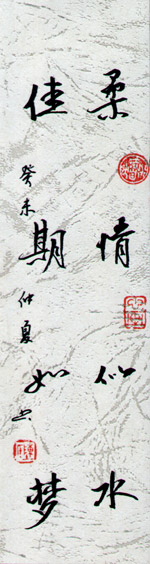 柔情似水
佳期如梦
癸未仲夏